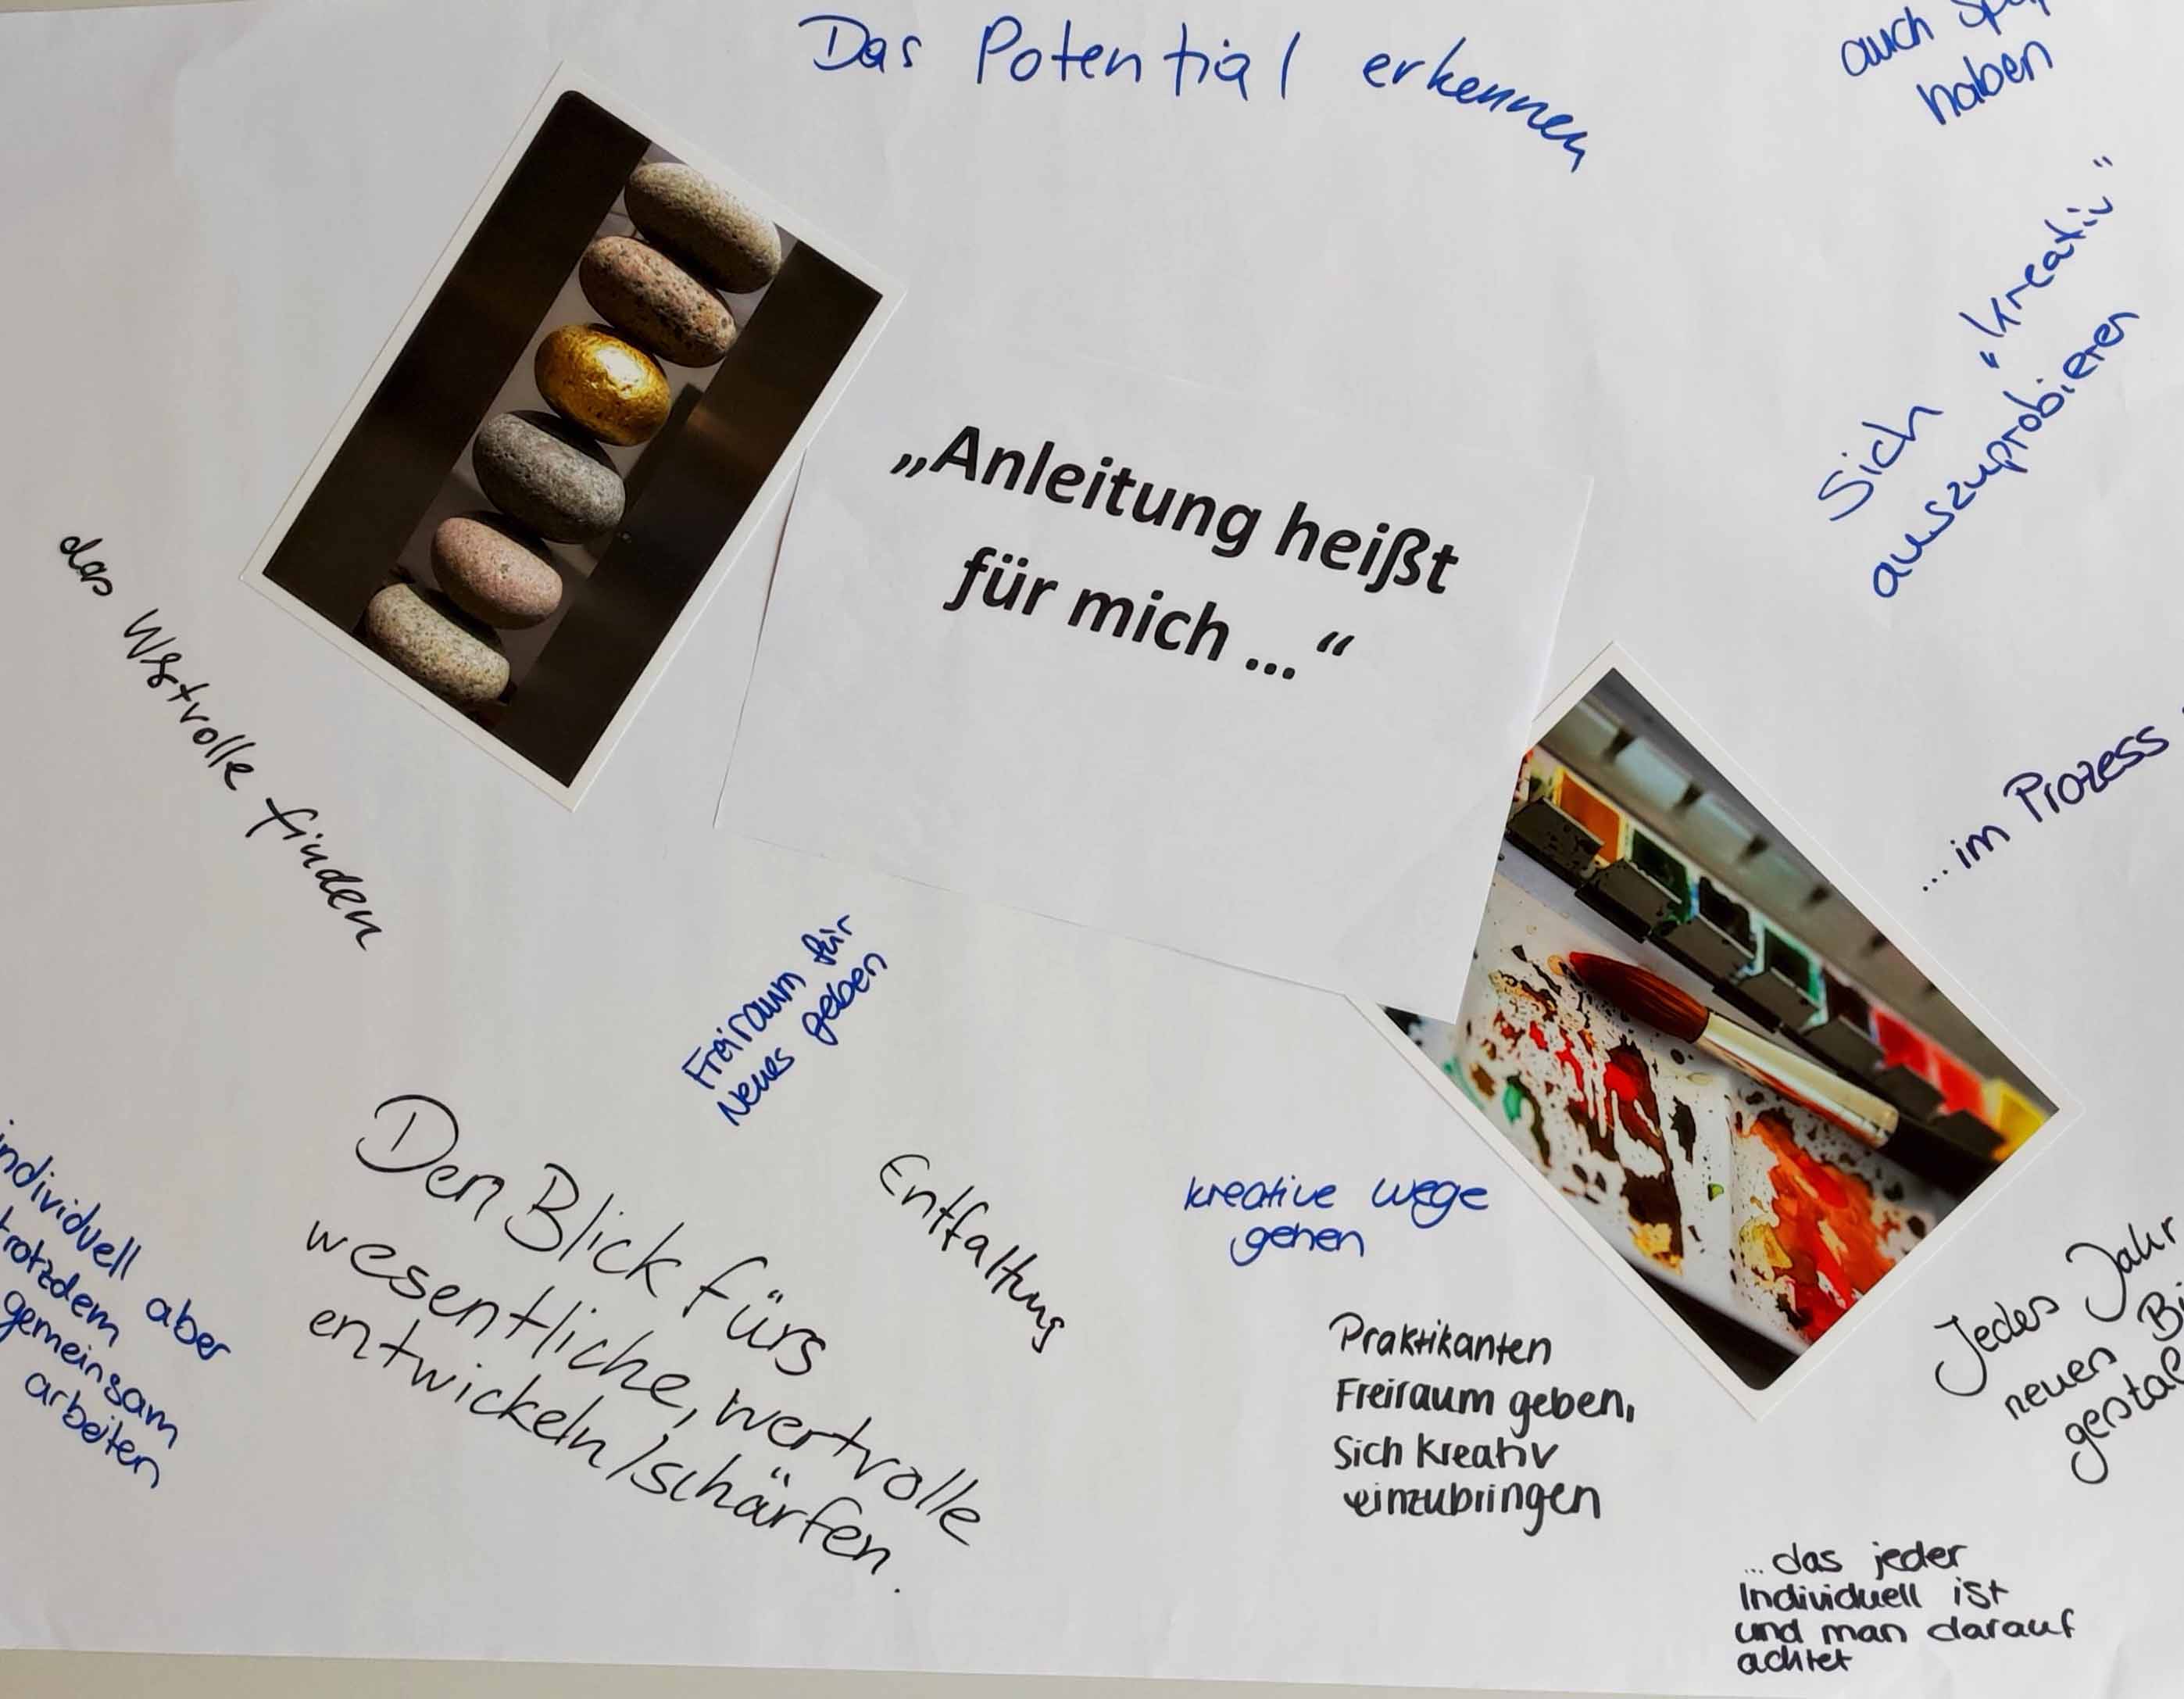 Das Potential erkennen
auch
haben
Sich „kreativ“
auszuprobieren
„Anleitung heißt
für mich ...“
das Wertvolle finden
... im Prozess
Freiraum für
Neues geben
Den Blick fürs
wesentliche, wertvolle
entwickeln/schärfen.
Entfaltung
kreative wege
gehen
individuell aber
trotzdem
gemeinsam
arbeiten
Praktikanten
Freiraum geben,
Sich kreativ
einzubringen
Jedes Jahr
neuen
... das jeder
Individuell ist
und man darauf
achtet